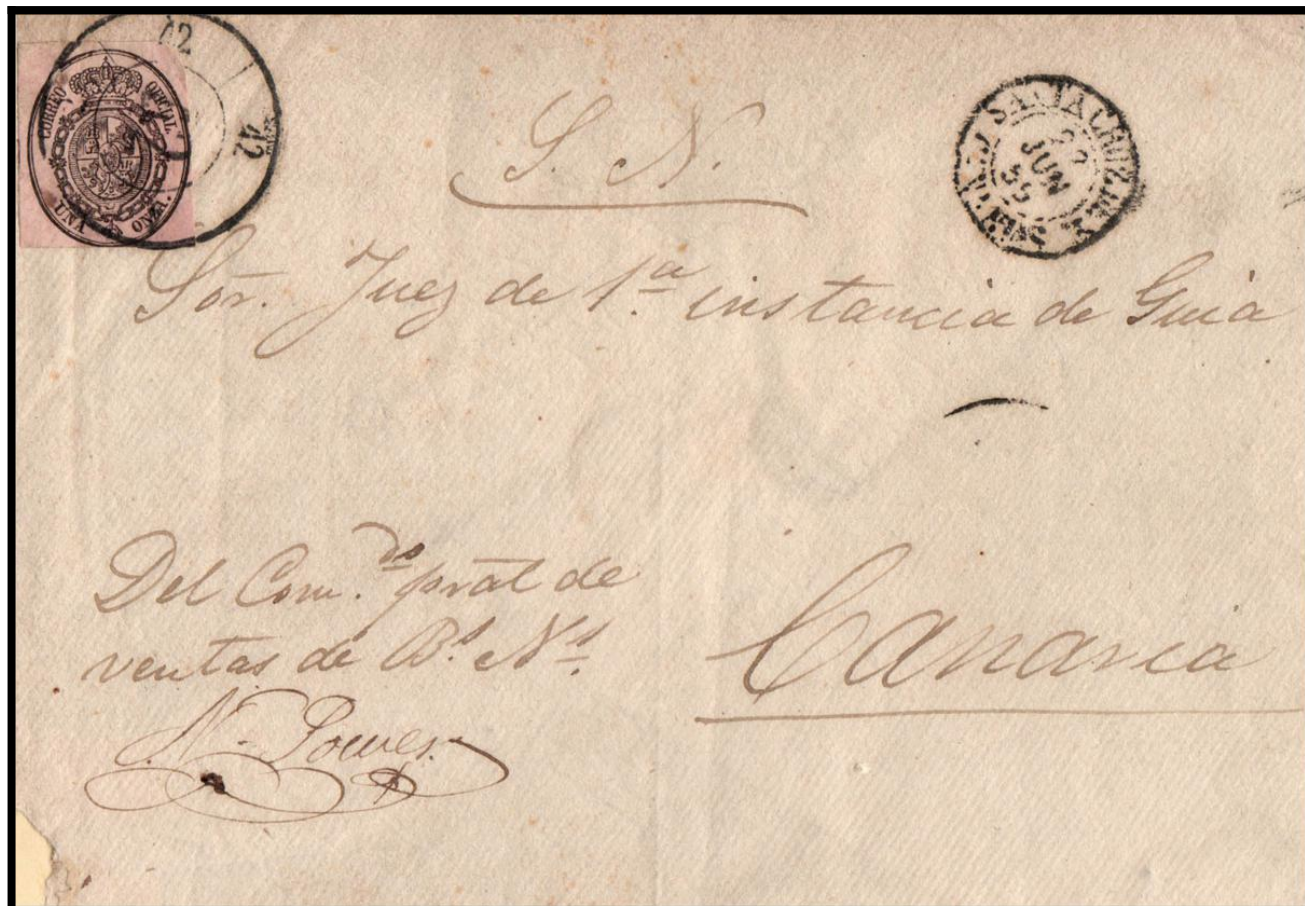 CORREO OFICIAL.
UNA ONZA.
42
42
S. N.
SANTA CRUZ DE
JUN
Sōr. Juez de 1.ª instancia de Guia
Del Com.do pral de
ventas de B.s N.s
Canaria